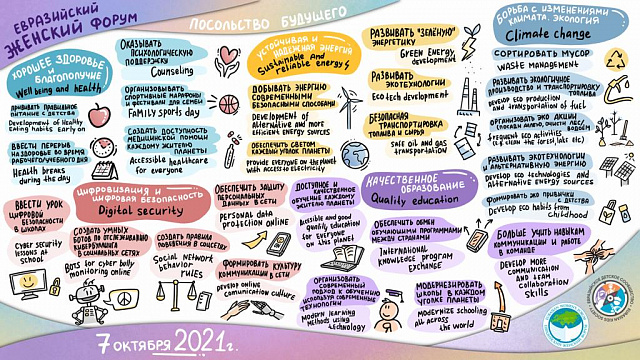 ЕВРАЗИЙСКИЙ
ЖЕНСКИЙ ФОРУМ
ПОСОЛЬСТВО БУДУЩЕГО
ХОРОШЕЕ ЗДОРОВЬЕ
И
БЛАГОПОЛУЧИЕ
Well being and health
ПРИВИВАТЬ ПРАВИЛЬНОЕ
ПИТАНИЕ С ДЕТСТВА
Development of Healthy
Eating habits Early on
ВВЕСТИ ПЕРЕРЫВ
НА ЗДОРОВЬЕ ВО ВРЕМЯ
РАБОЧЕГО/УЧЕБНОГО ДНЯ
Health breaks
during the day
ОКАЗЫВАТЬ
ПСИХОЛОГИЧЕСКУЮ
ПОДДЕРЖКУ
Counseling
ОРГАНИЗОВЫВАТЬ
СПОРТИВНЫЕ МАРАФОНЫ
И ФЕСТИВАЛИ ДЛЯ СЕМЬИ
FAMILY sports day
СОЗДАТЬ ДОСТУПНОСТЬ
МЕДИЦИНСКОЙ ПОМОЩИ
КАЖДОМУ ЖИТЕЛЮ
ПЛАНЕТЫ
Accessible healthcare
for everyone
УСТОЙЧИВАЯ И
НАДЕЖНАЯ ЭНЕРГИЯ
Sustainable and
reliable energy
ДОБЫВАТЬ ЭНЕРГИЮ
СОВРЕМЕННЫМИ
БЕЗОПАСНЫМИ СПОСОБАМИ
Development of
alternative and more
efficient energy sources
ОБЕСПЕЧИТЬ СВЕТОМ
КАЖДЫЙ УГОЛОК ПЛАНЕТЫ
PROVIDE EVERYONE ON the PLANET
with ACCESS TO ELECTRICITY
РАЗВИВАТЬ "ЗЕЛЁНУЮ"
ЭНЕРГЕТИКУ
Green Energy
development
РАЗВИВАТЬ
ЭКОТЕХНОЛОГИИ
Eco tech development
БЕЗОПАСНАЯ
ТРАНСПОРТИРОВКА
ТОПЛИВА И СЫРЬЯ
Safe oil and gas
transportation
БОРЬБА С ИЗМЕНЕНИЯМИ
КЛИМАТА. ЭКОЛОГИЯ
Climate change
СОРТИРОВАТЬ МУСОР
WASTE MANAGEMENT
РАЗВИВАТЬ ЭКОЛОГИЧНОЕ
ПРОИЗВОДСТВО И ТРАНСПОРТИРОВКУ
ТОПЛИВА
develop eco production and
transportation of fuel
ОРГАНИЗОВАТЬ ЭКО АКЦИИ
frequent Eco activities
РАЗВИВАТЬ ЭКОТЕХНОЛОГИИ
И АЛЬТЕРНАТИВНУЮ ЭНЕРГИЮ
develop eco technologies and
alternative energy sources
ФОРМИРОВАТЬ ЭКО ПРИВЫЧКИ
С ДЕТСТВА
Develop eco habits from
childhood
ЦИФРОВИЗАЦИЯ И
ЦИФРОВАЯ БЕЗОПАСНОСТЬ
Digital security
ВВЕСТИ УРОК
ЦИФРОВОЙ
БЕЗОПАСНОСТИ
В ШКОЛАХ
Cyber security
lessons at
school
СОЗДАТЬ УМНЫХ
БОТОВ ПО ОТСЛЕЖИВАНИЮ
КИБЕРБУЛЛИНГА
В СОЦИАЛЬНЫХ СЕТЯХ
Bots for cyber bully
monitoring online
СОЗДАТЬ ПРАВИЛА
ПОВЕДЕНИЯ В СОЦСЕТЯХ
Social network
behavior
rules
ОБЕСПЕЧИТЬ ЗАЩИТУ
ПЕРСОНАЛЬНЫХ
ДАННЫХ В СЕТИ
PERSONAL DATA
protection online
ФОРМИРОВАТЬ КУЛЬТУРУ
КОММУНИКАЦИИ В СЕТИ
Develop online
comunication culture
КАЧЕСТВЕННОЕ
ОБРАЗОВАНИЕ
Quality education
ДОСТУПНОЕ И
КАЧЕСТВЕННОЕ
ОБУЧЕНИЕ КАЖДОМУ
ЖИТЕЛЮ ПЛАНЕТЫ
and good
quality education
for everyone
on this planet
ОРГАНИЗОВАТЬ
СОВРЕМЕННЫЙ
ПОДХОД К ОБУЧЕНИЮ
ИСПОЛЬЗУЯ СОВРЕМЕННЫЕ
ТЕХНОЛОГИИ
Modern learning
methods using
technology
ОБЕСПЕЧИТЬ ОБМЕН
ОБУЧАЮЩИМИ ПРОГРАММАМИ
МЕЖДУ СТРАНАМИ
International
knowledge program
Exchange
МОДЕРНИЗИРОВАТЬ
ШКОЛЫ В КАЖДОМ
УГОЛКЕ ПЛАНЕТЫ
modernize schooling
all across
the world
БОЛЬШЕ УЧИТЬ НАВЫКАМ
КОММУНИКАЦИИ И РАБОТЕ
В КОМАНДЕ
DEVELOP MORE
COMMUNICATION
AND TEAM
collaboration
Skills
7 ОКТЯБРЯ 2021г.